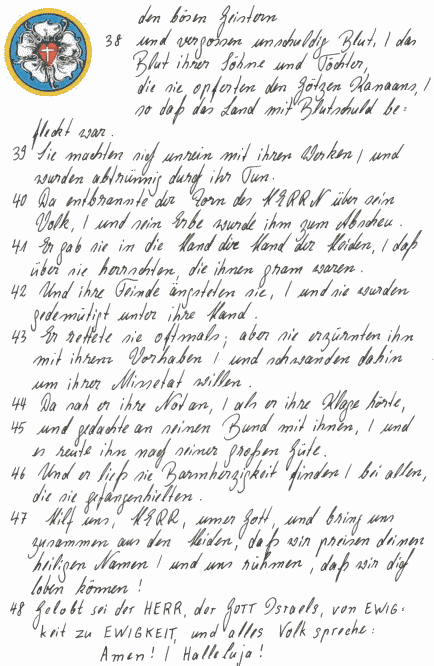 den bösen Geistern
38 und vergossen unschuldig Blut, / das
Blut ihrer Söhne und Töchter,
die sie opferten den Götzen Kanaans, /
so daß das Land mit Blutschuld be=
fleckt war.
39 Sie machten sich unrein mit ihren Werken / und
wurden abtrünnig durch ihr Tun.
40 Da entbrannte der Zorn des HERRN über sein
Volk, / und sein Erbe wurde ihm zum Abscheu.
41 Er gab sie in die Hand der Hand der Heiden, / daß
über sie herrschten, die ihnen gram waren.
42 Und ihre Feinde ängsteten sie, / und sie wurden
gedemütigt unter ihre Hand.
43 Er rettete sie oftmals; aber sie erzürnten ihn
mit ihrem Vorhaben / und schwanden dahin
um ihrer Missetat willen.
44 Da sah er ihre Not an, / als er ihre Klage hörte,
45 und gedachte an seinen Bund mit ihnen, / und
es reute ihn nach seiner großen Güte.
46 Und er ließ sie Barmherzigkeit finden / bei allen,
die sie gefangenhielten.
47 Hilf uns, HERR, unser Gott, und bring uns
zusammen aus den Heiden, daß wir preisen deinen
heiligen Namen / und uns rühmen, daß wir dich
loben können!
48 Gelobt sei der HERR, der GOTT Israels, von EWIG=
keit zu EWIGKEIT, und alles Volk spreche:
Amen! / Halleluja!